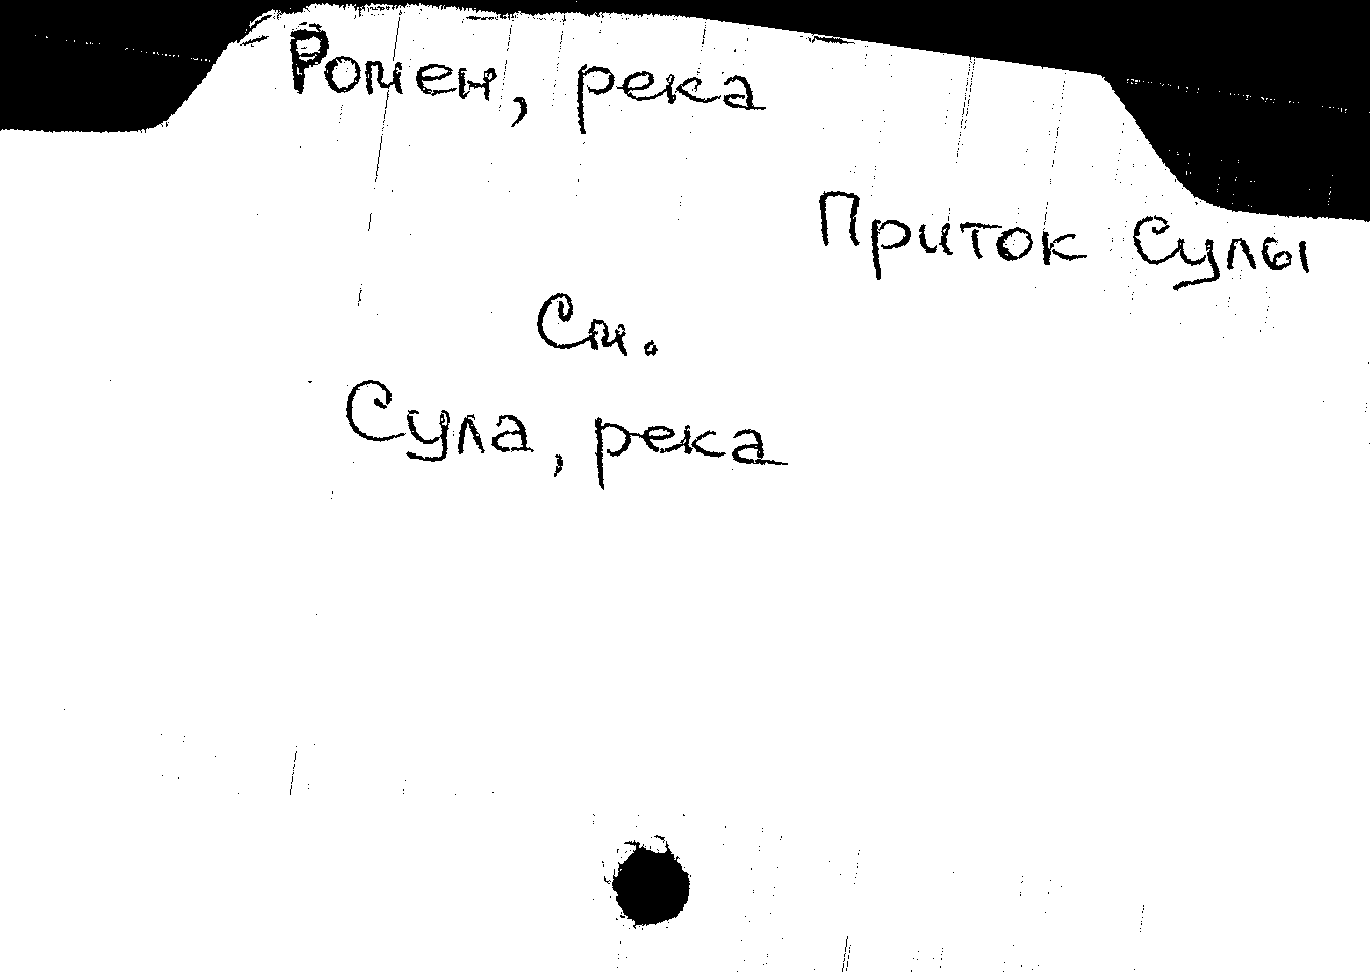 Ромен, река
Приток Сулы
См.
Сула, река